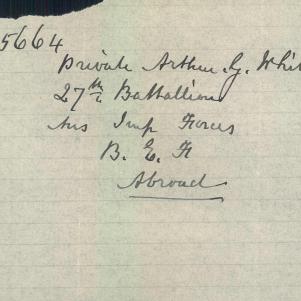 5664
Private Arthur G. Whit
27th Battallion
Aus Imp Forces
B. E. F
Abroad